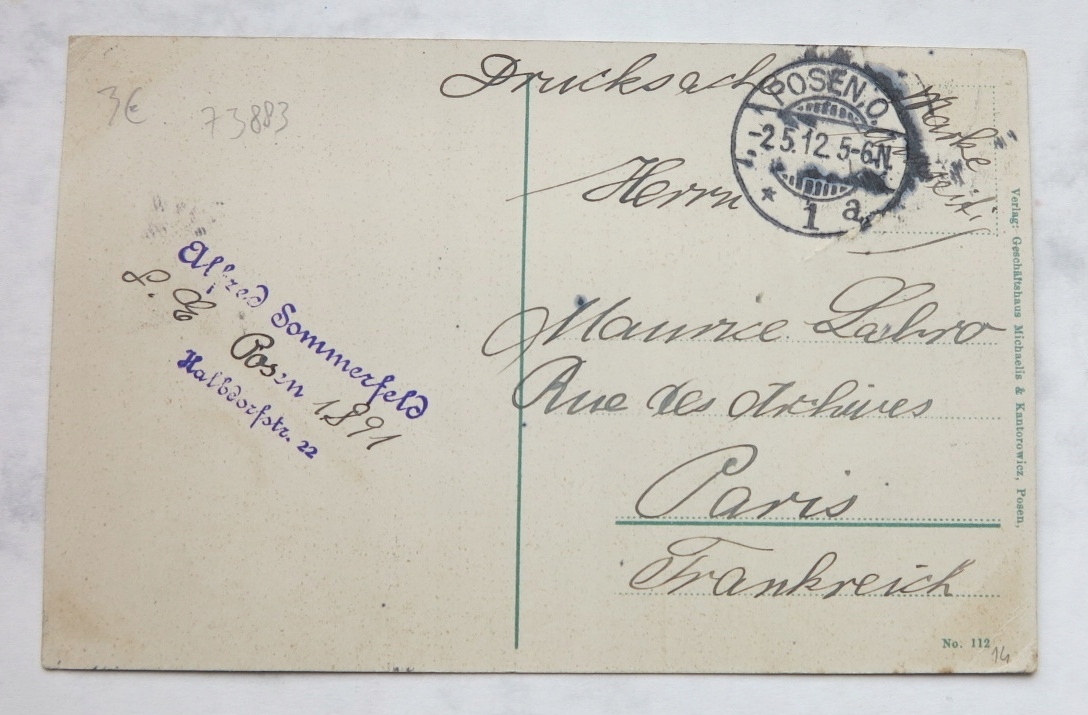 3€
73883
Drucksache
POSEN.O.
-2.5.12.5-6N.
* 1 a
Marke
Herrn
Maurice Labro
Rue des Archives
Paris
Frankreich
Alfred Sommerfeld
L. E. Posen 1891
Halbdorfstr. 22
Verlag: Geschäftshaus Michaelis & Kantorowicz, Posen,
No. 112
14